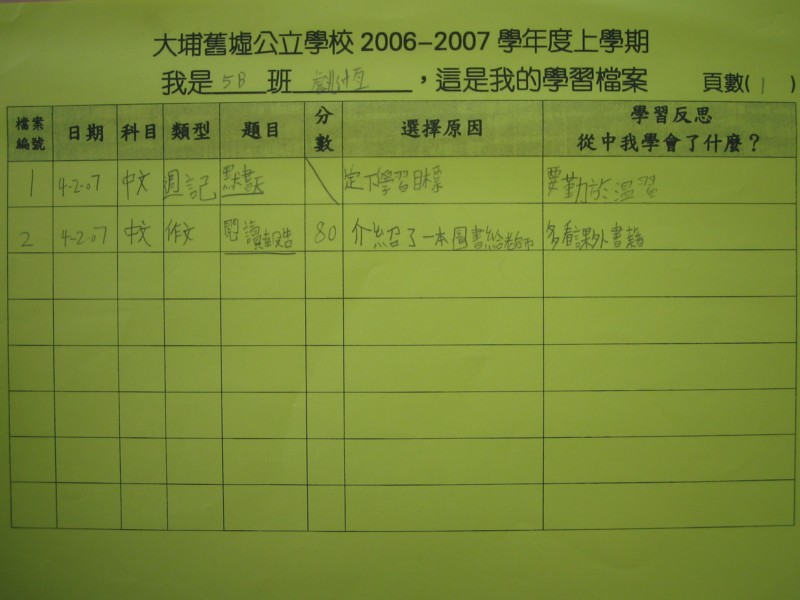 大埔舊墟公立學校 2006-2007 學年度上學期
我是 5B 班 ，這是我的學習檔案 頁數( 1 )
檔案編號 日期 科目 類型 題目 分數 選擇原因 學習反思 從中我學會了什麼？
1 4-2-07 中文 週記 定下學習目標 要勤於溫習
2 4-2-07 中文 作文 閱讀報告 80 介紹了一本圖書給老師 多看課外書籍